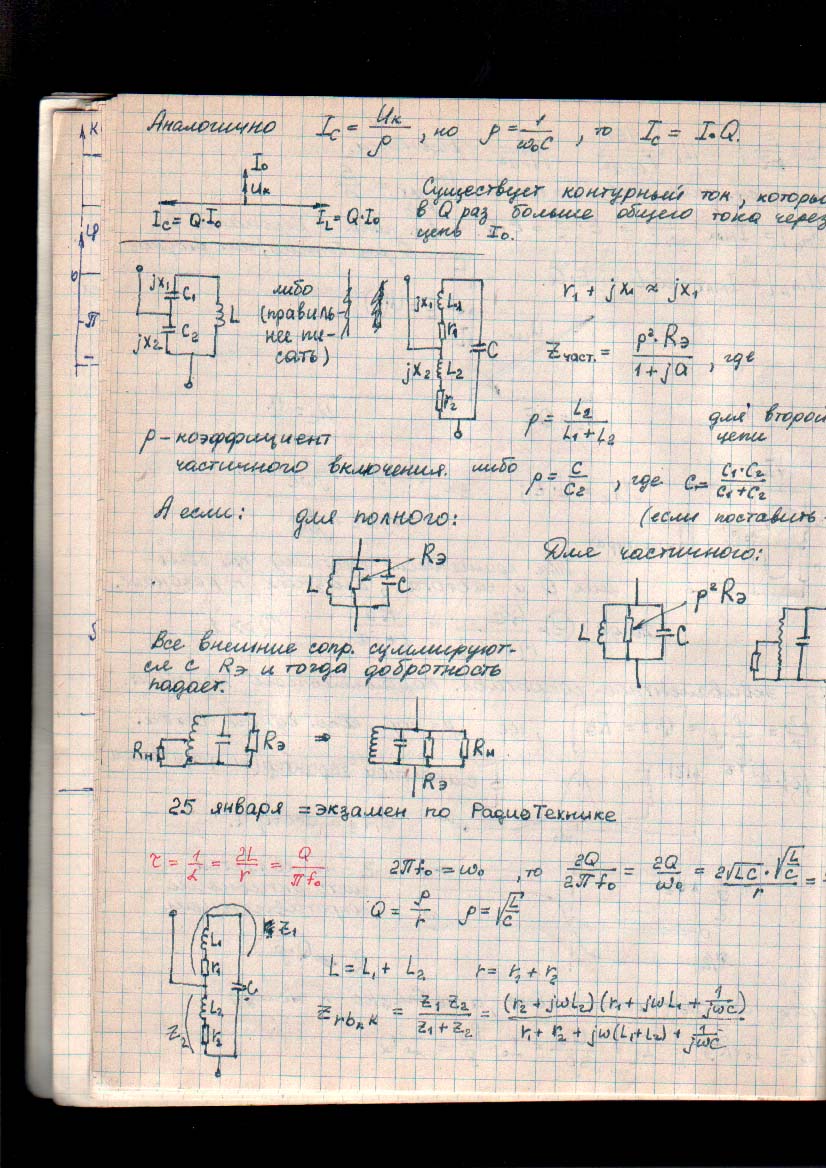 Аналогично I_C = U_к/ρ, но ρ = 1/(ω₀C), то I_C = I₀Q.
I₀
U_к
I_C = Q·I₀ I_L = Q·I₀
Существует контурный ток, который
в Q раз больше общего тока через
цепь I₀.
jX₁ C₁ L
jX₂ C₂
либо
(правиль-
нее пи-
сать)
jX₁ L₁
r₁ C
jX₂ L₂
r₂
r₁ + jX₁ ≈ jX₁
Z_част. = p²·R_э/(1+ja), где
p = L₂/(L₁+L₂) для второй
цепи
p - коэффициент
частичного включения. либо p = C/C₂, где C = C₁·C₂/(C₁+C₂)
(если поставить
А если: для полного:
Для частичного:
R_э
L C
p²R_э
L C
Все внешние сопр. суммируют-
ся с R_э и тогда добротность
падает.
R_н R_э ⇒ R_э R_н
25 января = экзамен по РадиоТехнике
τ = 1/α = 2L/r = Q/(πf₀) 2πf₀ = ω₀, то 2Q/(2πf₀) = 2Q/ω₀ = 2√(LC)·√(L/C)/r =
Q = ρ/r ρ = √(L/C)
Z₁
L₁
r₁
C
L₂
Z₂ r₂
L = L₁ + L₂ r = r₁ + r₂
= Z₁Z₂/(Z₁+Z₂) = (r₂ + jωL₂)(r₁ + jωL₁ + 1/(jωC))/(r₁ + r₂ + jω(L₁+L₂) + 1/(jωC))